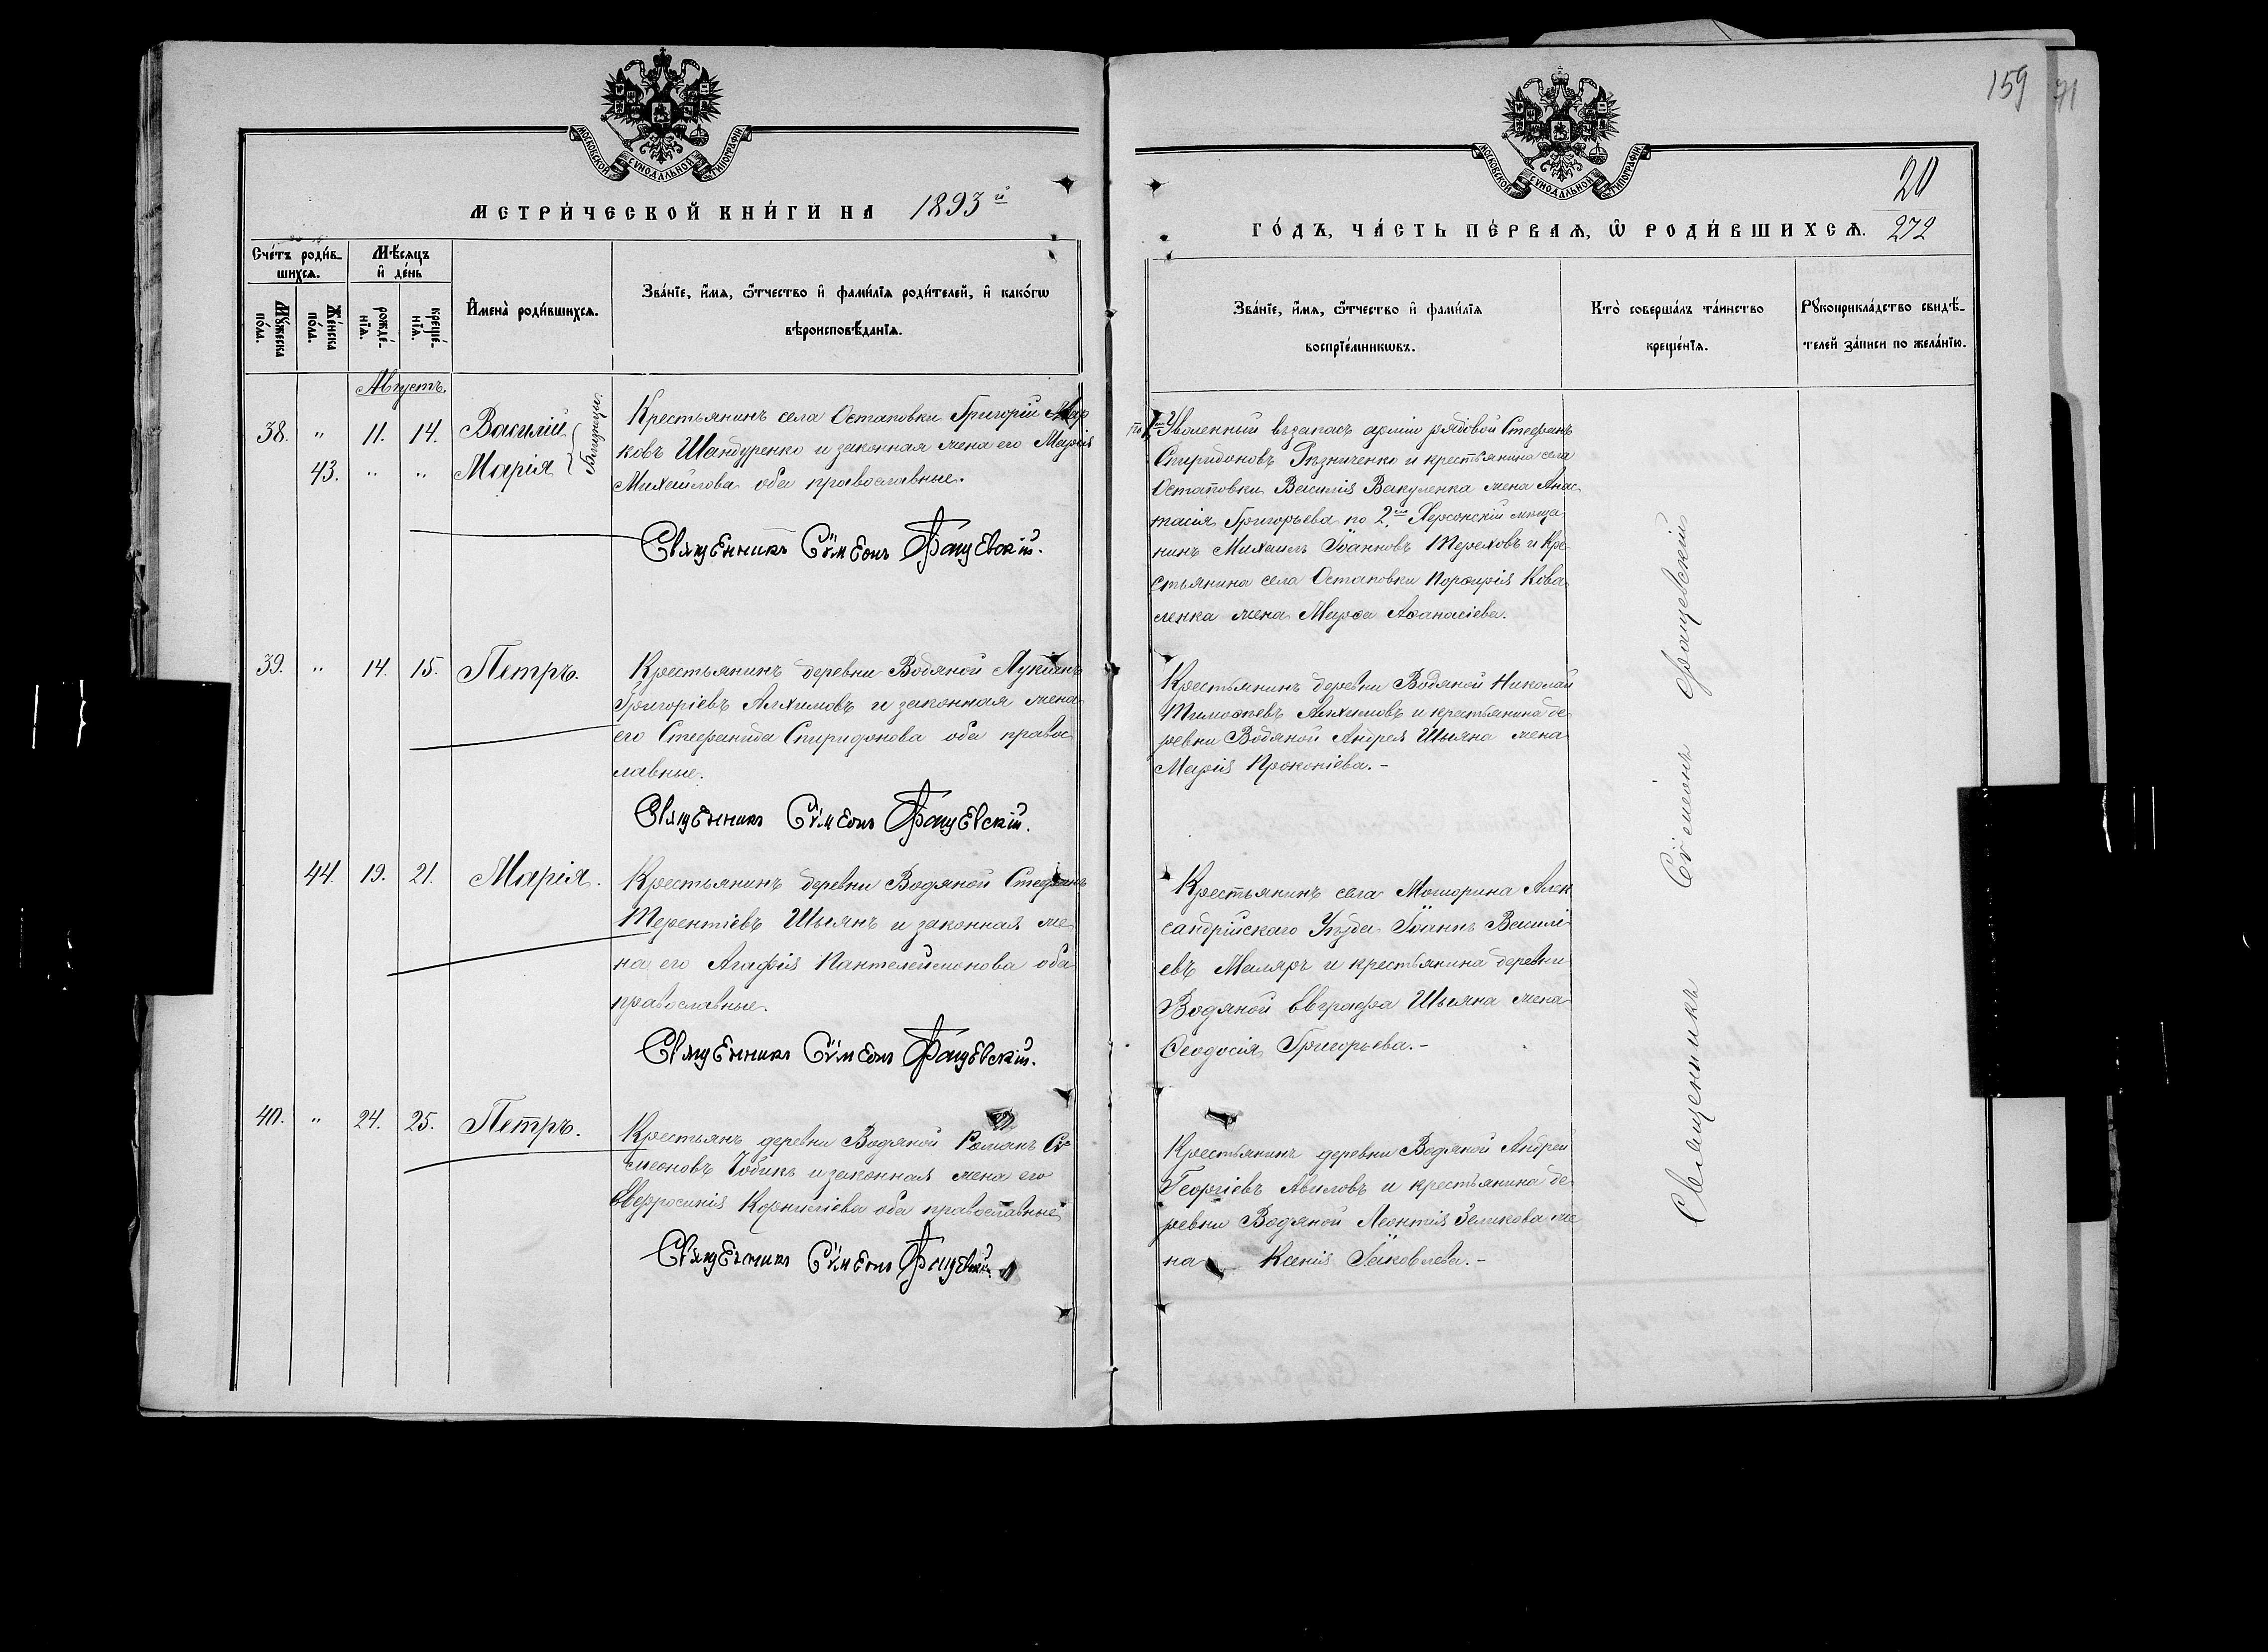 МОСКОВСКОЙ СѴНОДАЛЬНОЙ ТИПОГРАФІИ
МЕТРИ́ЧЕСКОЙ КНИ́ГИ НА 1893й
Сче́тъ роди́в-
шихся.
Мѣ́сяцъ
и҆ де́нь
Мꙋ́жеска
по́ла.
Же́нска
по́ла.
рожде́-
нїѧ.
креще́-
нїѧ.
И҆мена̀ роди́вшихсѧ.
Зва́нїе, и҆́мѧ, ѻ҆́тчество и҆ фами́лїѧ роди́телей, и҆ како́гѡ
вѣроисповѣ́данїѧ.
Августъ.
38. " 11. 14. Василій
43. " " Марія
близнецы.
Крестьянинъ села Остаповки Григорій Мар
ковъ Шандуренко и законная жена его Марія
Михайлова оба православные.
Священникъ Сѵмеонъ Фащевскій.
39. " 14. 15. Петръ.
Крестьянинъ деревни Водяной Лукіанъ
Григоріевъ Алхимовъ и законная жена
его Стефанида Спиридонова оба правос
лавные.
Священникъ Сѵмеонъ Фащевскій.
44. 19. 21. Марія.
Крестьянинъ деревни Водяной Стефанъ
Терентіевъ Шыянъ и законная же
на его Агафія Пантелеимонова оба
православные.
Священникъ Сѵмеонъ Фащевскій.
40. " 24. 25. Петръ.
Крестьянъ деревни Водяной Романъ Сѵ
меоновъ Чобикъ и законная жена его
Евфросинія Корниліева оба православные
Священникъ Сѵмеонъ Фащевскій
159
71
МОСКОВСКОЙ СѴНОДАЛЬНОЙ ТИПОГРАФІИ
20
272
ГО́ДЪ, ЧА́СТЬ ПЕ́РВАѦ, Ѡ҆ РОДИ́ВШИХСѦ.
Зва́нїе, и҆́мѧ, ѻ҆́тчество и҆ фами́лїѧ
воспрїе́мникѡвъ.
Кто̀ соверша́лъ та́инство
креще́нїѧ.
Рꙋкоприкла́дство свидѣ́-
телей за́писи по жела́нїю.
по 1му Уволенный въ запасъ арміи рядовой Стефанъ
Спиридоновъ Рѣзниченко и крестьянина села
Остаповки Василія Вакуленка жена Анас
тасія Григорьева по 2му Херсонскій мѣща
нинъ Михаилъ Іоанновъ Тереховъ и кре
стьянина села Остаповки Порфирія Кова
ленка жена Марѳа Аѳанасіева.
Крестьянинъ деревни Водяной Николай
Тимоѳеевъ Алхимовъ и крестьянина де
ревни Водяной Андрея Шыяна жена
Марія Прокопіева.-
Крестьянинъ села Мошорина Алек
сандрійскаго Уѣзда Іоаннъ Василі
евъ Маляръ и крестьянина деревни
Водяной Евграфа Шыяна жена
Ѳеодосія Григорьева.-
Крестьянинъ деревни Водяной Андрей
Георгіевъ Авиловъ и крестьянина де
ревни Водяной Леонтія Зеликова же
на Ксенія Іаковлева.-
Священникъ Сѵмеонъ Фращевскій